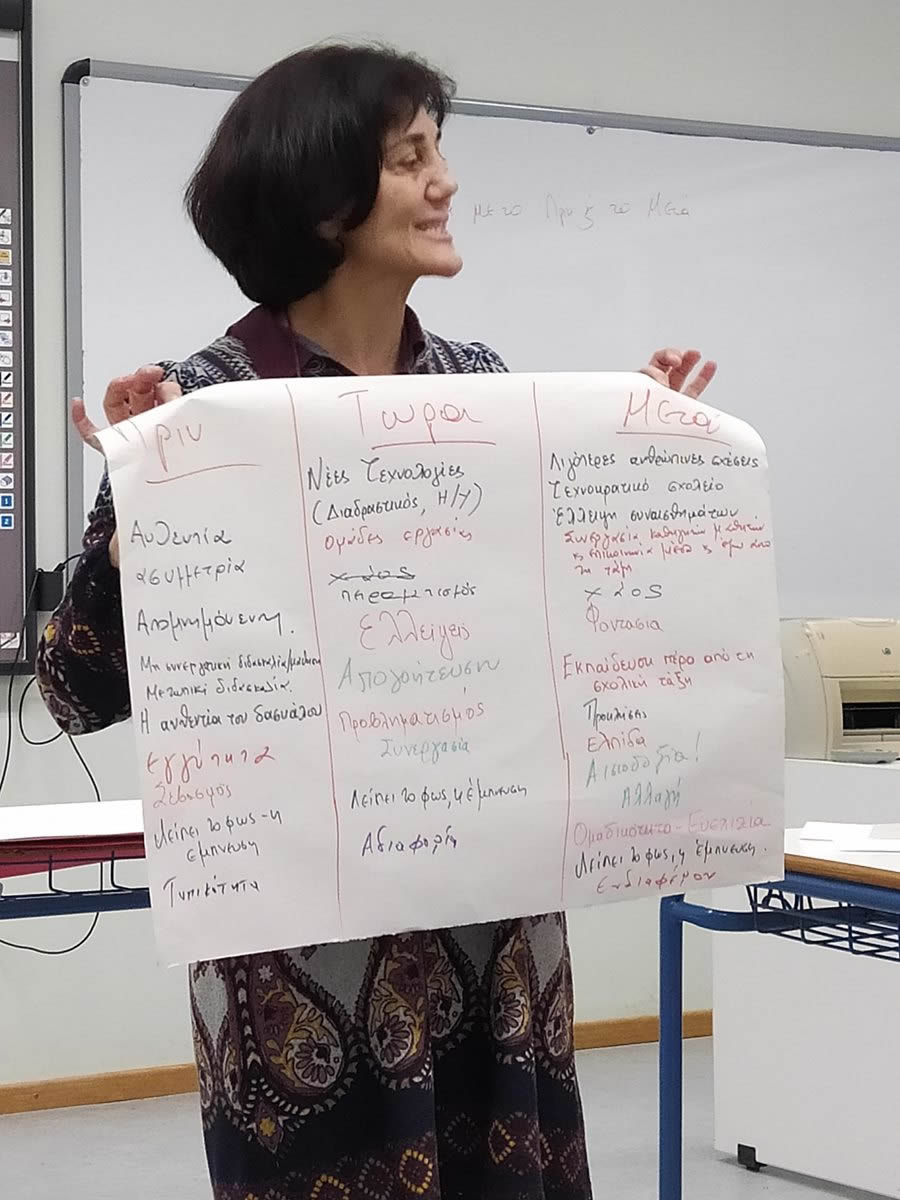 με το Πριν & το Μετά
Πριν
Αυθεντία
ασυμμετρία
Απομνημόνευση.
Μη συνεργατική διδασκαλία/μάθηση
Μετωπική διδασκαλία.
Η αυθεντία του δασκάλου
Εγγύτητα
Σεβασμός
Λείπει το φως - η
έμπνευση
Τυπικότητα
Τώρα
Νέες Τεχνολογίες
(Διαδραστικός, Η/Υ)
Ομάδες εργασίας
χάος
πειραματισμός
Ελλείψεις
Απογοήτευση
Προβληματισμός
Συνεργασία
Λείπει το φως, η έμπνευση
Αδιαφορία
Μετά
Λιγότερες ανθρώπινες σχέσεις
Τεχνοκρατικό σχολείο
Έλλειψη συναισθημάτων
Συνεργασία καθηγητών μαθητών
& επικοινωνία μέσα & έξω από
τη τάξη
χάος
Φαντασία
Εκπαίδευση πέρα από τη
σχολική τάξη
Προκλήσεις
Ελπίδα
Αισιοδοξία!
Αλλαγή
Ομαδικότητα - Ευελιξία
Λείπει το φως, η έμπνευση.
Ενδιαφέρον